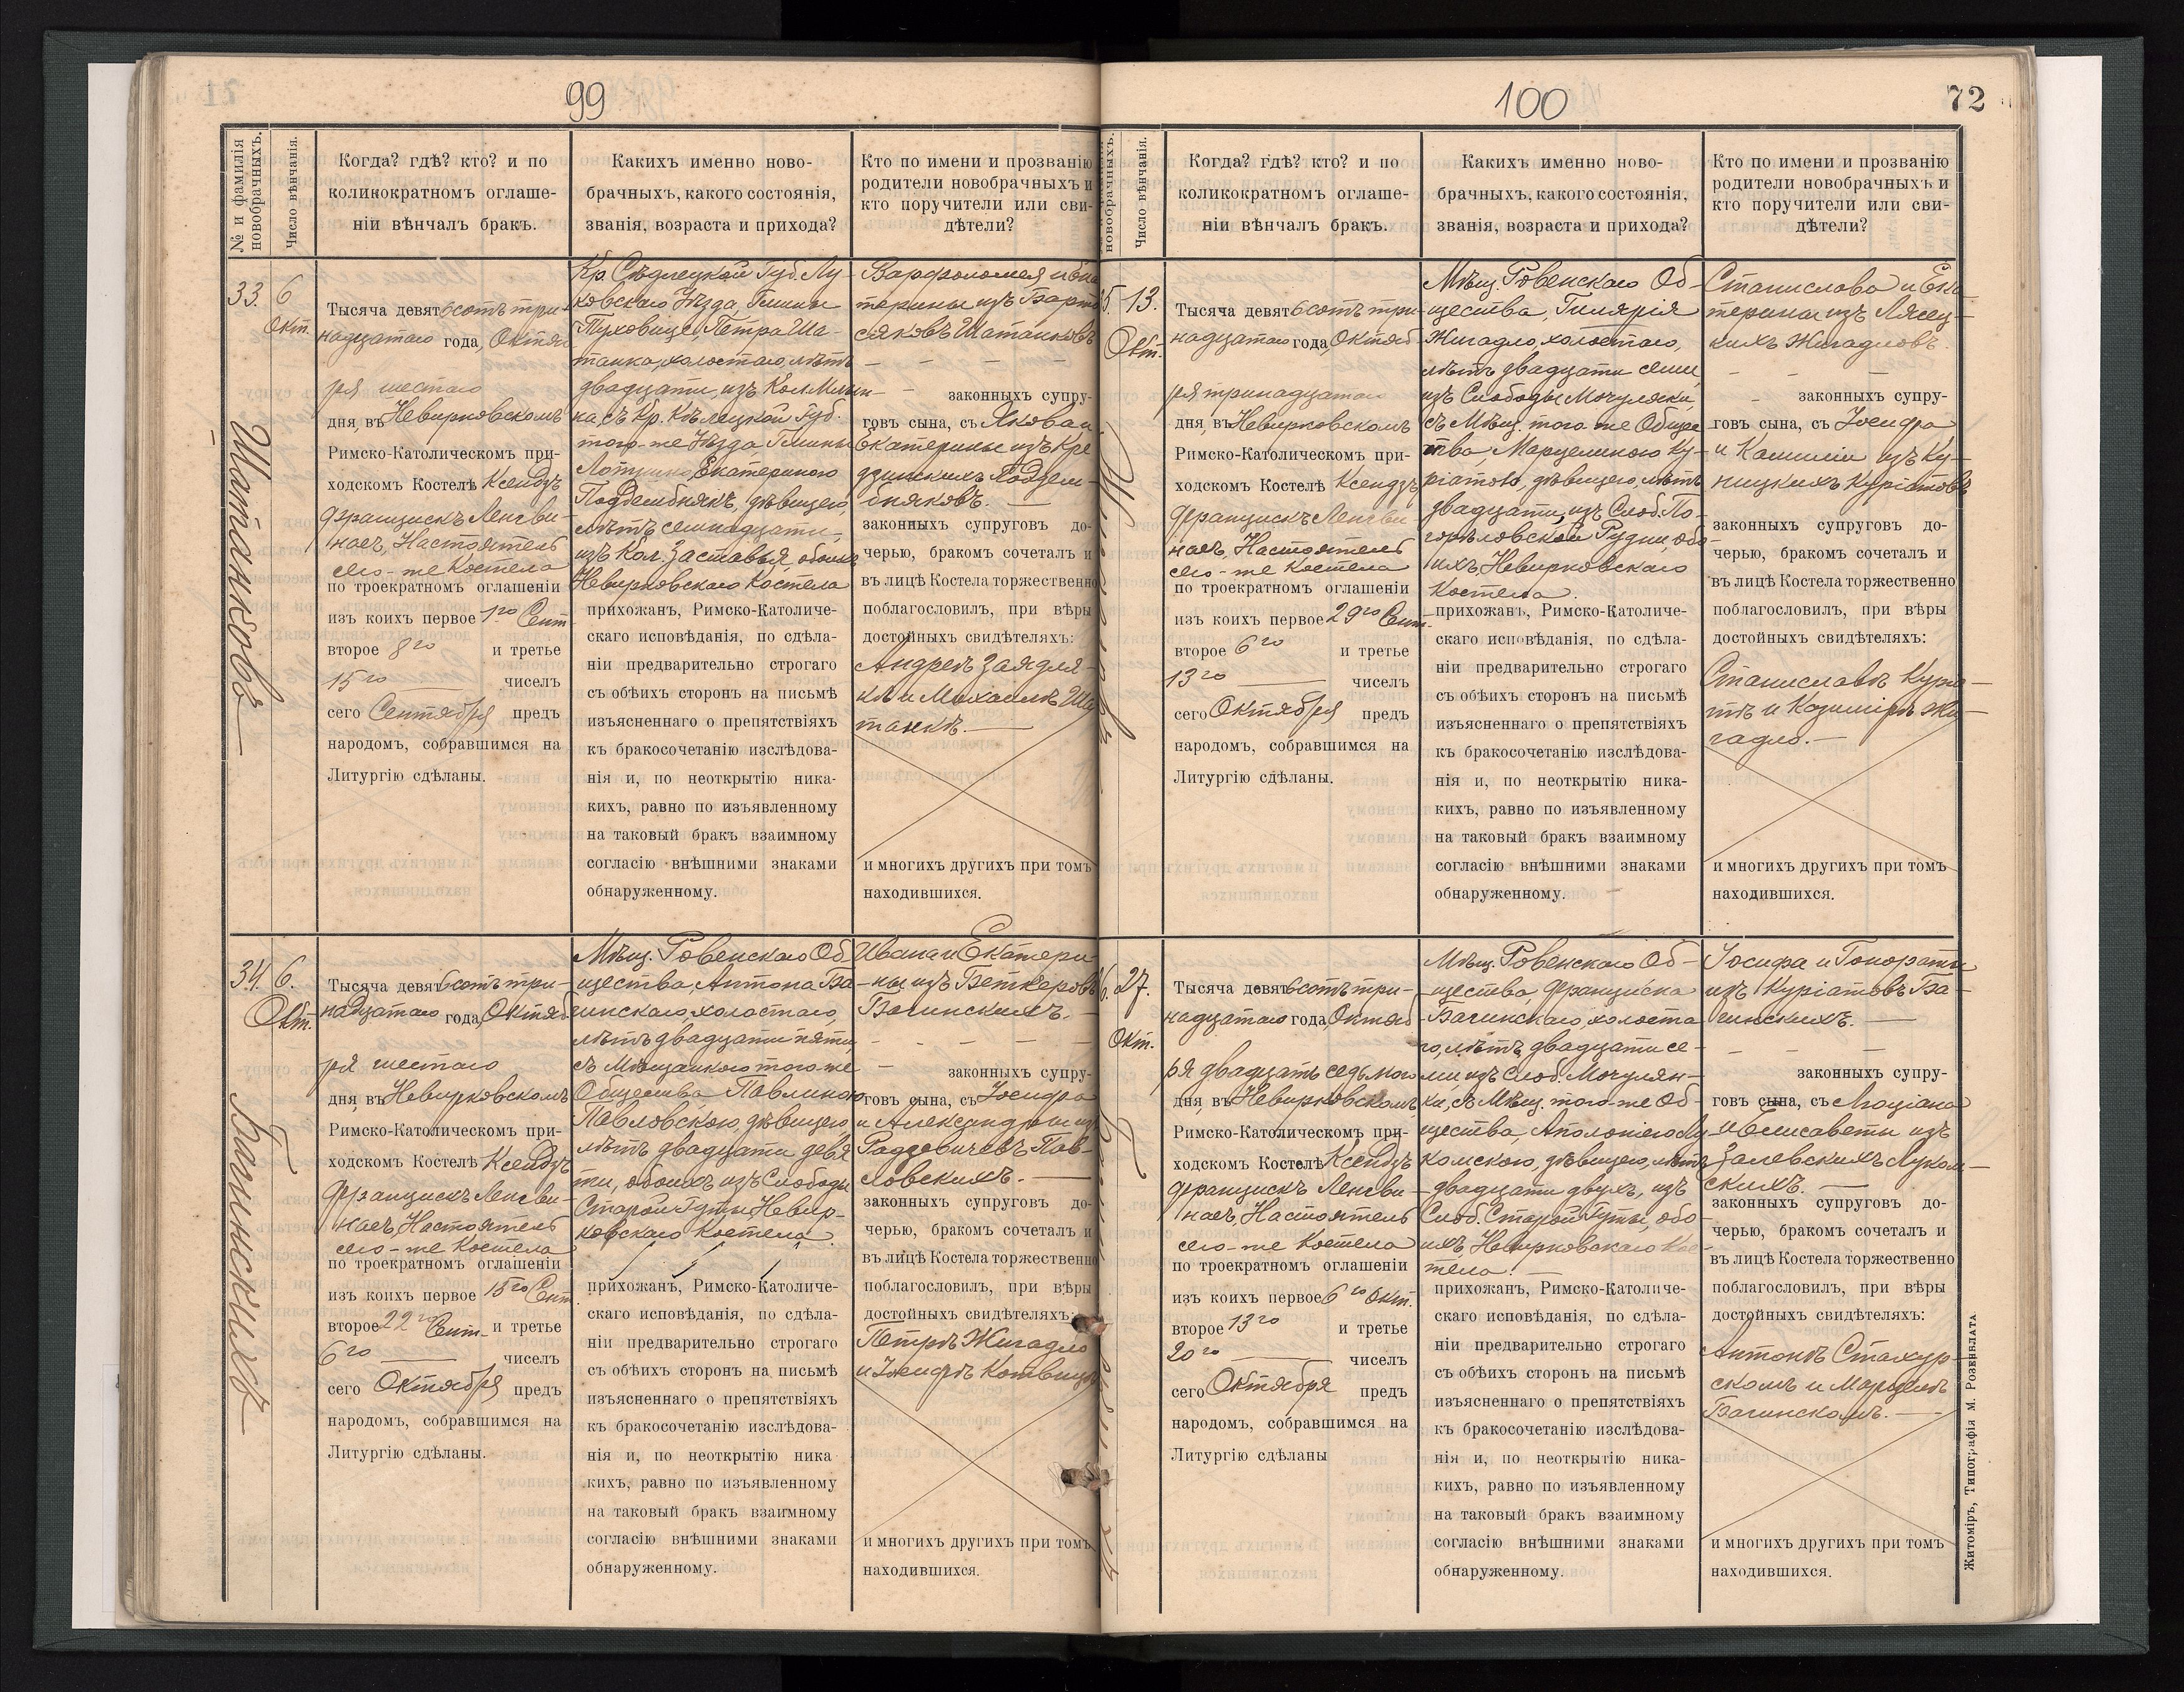 99
№ и фамилія новобрачныхъ.
Число вѣнчанія.
Когда? гдѣ? кто? и по
коликократномъ оглаше-
ніи вѣнчалъ бракъ.
Какихъ именно ново-
брачныхъ, какого состоянія,
званія, возраста и прихода?
Кто по имени и прозванію
родители новобрачныхъ и
кто поручители или сви-
дѣтели?
33.
Шатанковъ
6
Окт.
Тысяча девятьсотъ три-
надцатаго года, Октяб
ря шестаго
дня, въ Невирковскомъ
Римско-Католическомъ при-
ходскомъ Костелѣ Ксендзъ
Францискъ Ленгви-
насъ, Настоятель
сего-же Костела
по троекратномъ оглашеніи
изъ коихъ первое 1го Сент-
второе 8го и третье
15го чиселъ
сего Сентября предъ
народомъ, собравшимся на
Литургію сдѣланы.
Кр. Сѣдлецкой Губ. Лу-
ковскаго Уѣзда, Гмины
Туховице, Петра Ша-
танка, холостаго, лѣтъ
двадцати, изъ Кол. Млын-
ка, съ Кр. Кѣлецкой Губ.
того-же Уѣзда, Гмины
Лопушно, Екатериною
Подзембнякъ, дѣвицею,
лѣтъ семнадцати,
изъ Кол. Заставья, обоихъ
Невирковскаго Костела
прихожанъ, Римско-Католиче-
скаго исповѣданія, по сдѣла-
ніи предварительно строгаго
съ обѣихъ сторонъ на письмѣ
изъясненнаго о препятствіяхъ
къ бракосочетанію изслѣдова-
нія и, по неоткрытію ника-
кихъ, равно по изъявленному
на таковый бракъ взаимному
согласію внѣшними знаками
обнаруженному.
Варфоломея и Ека
терины изъ Барто
сяковъ Шатанковъ
законныхъ супру-
говъ сына, съ Якова и
Екатерины изъ Кре
дзинскихъ Подзем-
бняковъ.
законныхъ супруговъ до-
черью, бракомъ сочеталъ и
въ лицѣ Костела торжественно
поблагословилъ, при вѣры
достойныхъ свидѣтеляхъ:
Андреѣ Заядля-
кѣ и Михаилѣ Ша
танкѣ.
и многихъ другихъ при томъ
находившихся.
34.
Багинскихъ
6.
Окт.
Тысяча девятьсотъ три-
надцатаго года, Октяб
ря шестаго
дня, въ Невирковскомъ
Римско-Католическомъ при-
ходскомъ Костелѣ Ксендзъ
Францискъ Ленгви-
насъ, Настоятель
сего-же Костела
по троекратномъ оглашеніи
изъ коихъ первое 15го Сент
второе 22го Сент. и третье
6го чиселъ
сего Октября предъ
народомъ, собравшимся на
Литургію сдѣланы.
Мѣщ. Ровенскаго Об
щества, Антона Ба
гинскаго, холостаго,
лѣтъ двадцати пяти,
съ Мѣщанкою того-же
Общества, Павлиною
Павловскою, дѣвицею,
лѣтъ двадцати девя
ти, обоихъ изъ Слободы
Старой Гуты Невир-
ковскаго Костела
прихожанъ, Римско-Католиче-
скаго исповѣданія, по сдѣла-
ніи предварительно строгаго
съ обѣихъ сторонъ на письмѣ
изъясненнаго о препятствіяхъ
къ бракосочетанію изслѣдова-
нія и, по неоткрытію ника
кихъ, равно по изъявленному
на таковый бракъ взаимному
согласію внѣшними знаками
обнаруженному.
Ивана и Екатери
ны изъ Беткеровъ
Багинскихъ.
законныхъ супру-
говъ сына, съ Іосифа
и Александры изъ
Радзевичевъ Пав-
ловскихъ.
законныхъ супруговъ до-
черью, бракомъ сочеталъ и
въ лицѣ Костела торжественно
поблагословилъ, при вѣры
достойныхъ свидѣтеляхъ:
Петрѣ Жигадло
и Іосифѣ
и многихъ другихъ при томъ
находившихся.
100
72
новобрачныхъ.
Число вѣнчанія.
Когда? гдѣ? кто? и по
коликократномъ оглаше-
ніи вѣнчалъ бракъ.
Какихъ именно ново-
брачныхъ, какого состоянія,
званія, возраста и прихода?
Кто по имени и прозванію
родители новобрачныхъ и
кто поручители или сви-
дѣтели?
5.
13.
Окт.
Тысяча девятьсотъ три-
надцатаго года, Октяб
ря тринадцатаго
дня, въ Невирковскомъ
Римско-Католическомъ при-
ходскомъ Костелѣ Ксендзъ
Францискъ Ленгви-
насъ, Настоятель
сего-же Костела
по троекратномъ оглашеніи
изъ коихъ первое 29го Сент.
второе 6го и третье
13го чиселъ
сего Октября предъ
народомъ, собравшимся на
Литургію сдѣланы.
Мѣщ. Ровенскаго Об-
щества, Гилярія
Жигадло, холостаго,
лѣтъ двадцати семи,
изъ Слободы Мочулянки,
съ Мѣщ. того-же Общес
тва, Марцелиною Ку-
ріатою, дѣвицею, лѣтъ
двадцати, изъ Слоб. По-
горѣловской Рудни, обо
ихъ Невирковскаго
Костела.
прихожанъ, Римско-Католиче-
скаго исповѣданія, по сдѣла-
ніи предварительно строгаго
съ обѣихъ сторонъ на письмѣ
изъясненнаго о препятствіяхъ
къ бракосочетанію изслѣдова-
нія и, по неоткрытію ника-
кихъ, равно по изъявленному
на таковый бракъ взаимному
согласію внѣшними знаками
обнаруженному.
Станислава и Ека
терины изъ Лясец-
кихъ Жигадловъ.
законныхъ супру-
говъ сына, съ Іосифа
и Камиліи изъ Ку-
ницкихъ Куріатовъ
законныхъ супруговъ до-
черью, бракомъ сочеталъ и
въ лицѣ Костела торжественно
поблагословилъ, при вѣры
достойныхъ свидѣтеляхъ:
Станиславѣ Курia-
тѣ и Казимірѣ Жи-
гадло.
и многихъ другихъ при томъ
находившихся.
6.
27.
Окт.
Тысяча девятьсотъ три-
надцатаго года, Октяб
ря двадцать седьмого
дня, въ Невирковскомъ
Римско-Католическомъ при-
ходскомъ Костелѣ Ксендзъ
Францискъ Ленгви-
насъ, Настоятель
сего-же Костела
по троекратномъ оглашеніи
изъ коихъ первое 6го Окт.
второе 13го и третье
20го чиселъ
сего Октября предъ
народомъ, собравшимся на
Литургію сдѣланы
Мѣщ. Ровенскаго Об-
щества, Франциска
Багинскаго, холоста
го, лѣтъ двадцати се-
ми, изъ Слоб. Мочулян-
ки, съ Мѣщ. того-же Об-
щества, Аполоніею Лу
комскою, дѣвицею, лѣтъ
двадцати двухъ, изъ
Слоб. Старой Гуты, обо
ихъ Невирковскаго Кос
тела.
прихожанъ, Римско-Католиче-
скаго исповѣданія, по сдѣла-
ніи предварительно строгаго
съ обѣихъ сторонъ на письмѣ
изъясненнаго о препятствіяхъ
къ бракосочетанію изслѣдова-
нія и, по неоткрытію ника-
кихъ, равно по изъявленному
на таковый бракъ взаимному
согласію внѣшними знаками
обнаруженному.
Іосифа и Гонораты
изъ Куріатовъ Ба-
гинскихъ.
законныхъ супру-
говъ сына, съ Люціана
и Елисаветы изъ
Залевскихъ Луком-
скихъ.
законныхъ супруговъ до-
черью, бракомъ сочеталъ и
въ лицѣ Костела торжественно
поблагословилъ, при вѣры
достойныхъ свидѣтеляхъ:
Антонѣ Стахур-
скомъ и Марцелѣ
Багинскомъ.
и многихъ другихъ при томъ
находившихся.
Житоміръ, Типографія М. Розенблата